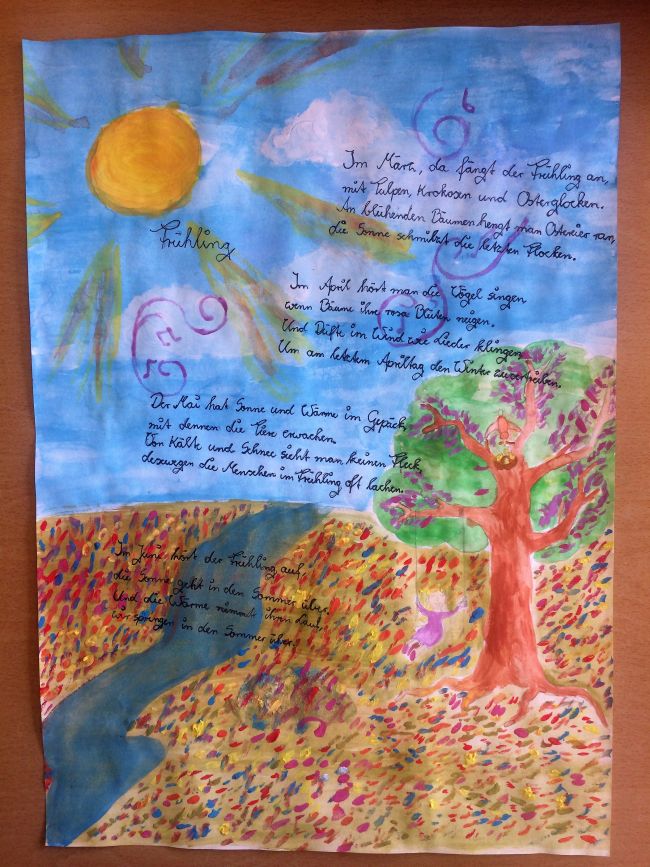 Frühling
Im März, da fängt der Frühling an,
mit Tulpen, Krokosen und Osterglocken.
An blühenden Bäumen hengt man Ostereier ran,
die Sonne schmilzt die letzten Flocken.
Im April hört man die Vögel singen
wenn Bäume ihre rosa Blüten neigen.
Und Düfte im Wind wie Lieder klingen
Um am letztem Apriltag den Winter zuvertreiben.
Der Mai hat Sonne und Wärme im Gepäck,
mit dennen die Tiere erwachen.
Von Kälte und Schnee sieht man keinen Fleck,
deswegen die Menschen im Frühling oft lachen.
Im Juni hört der Frühling auf,
die Sonne geht in den Sommer über.
Und die Wärme nimmt ihren Lauf,
wir springen in den Sommer über.